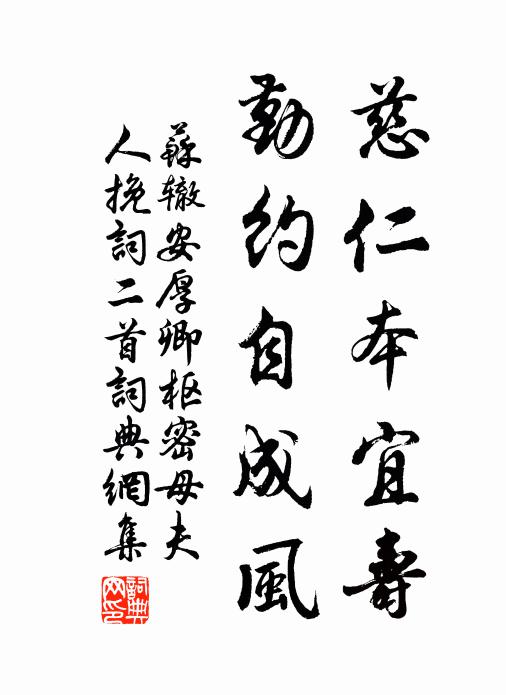 慈仁本宜壽
勤約自成風
蘇辙安厚卿枢密母夫
人挽詞二首詞典網集
詞典
網印